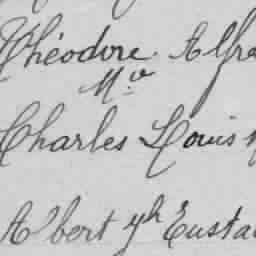 Théodore Alfre
M.v
Charles Louis
Albert yh Eusta